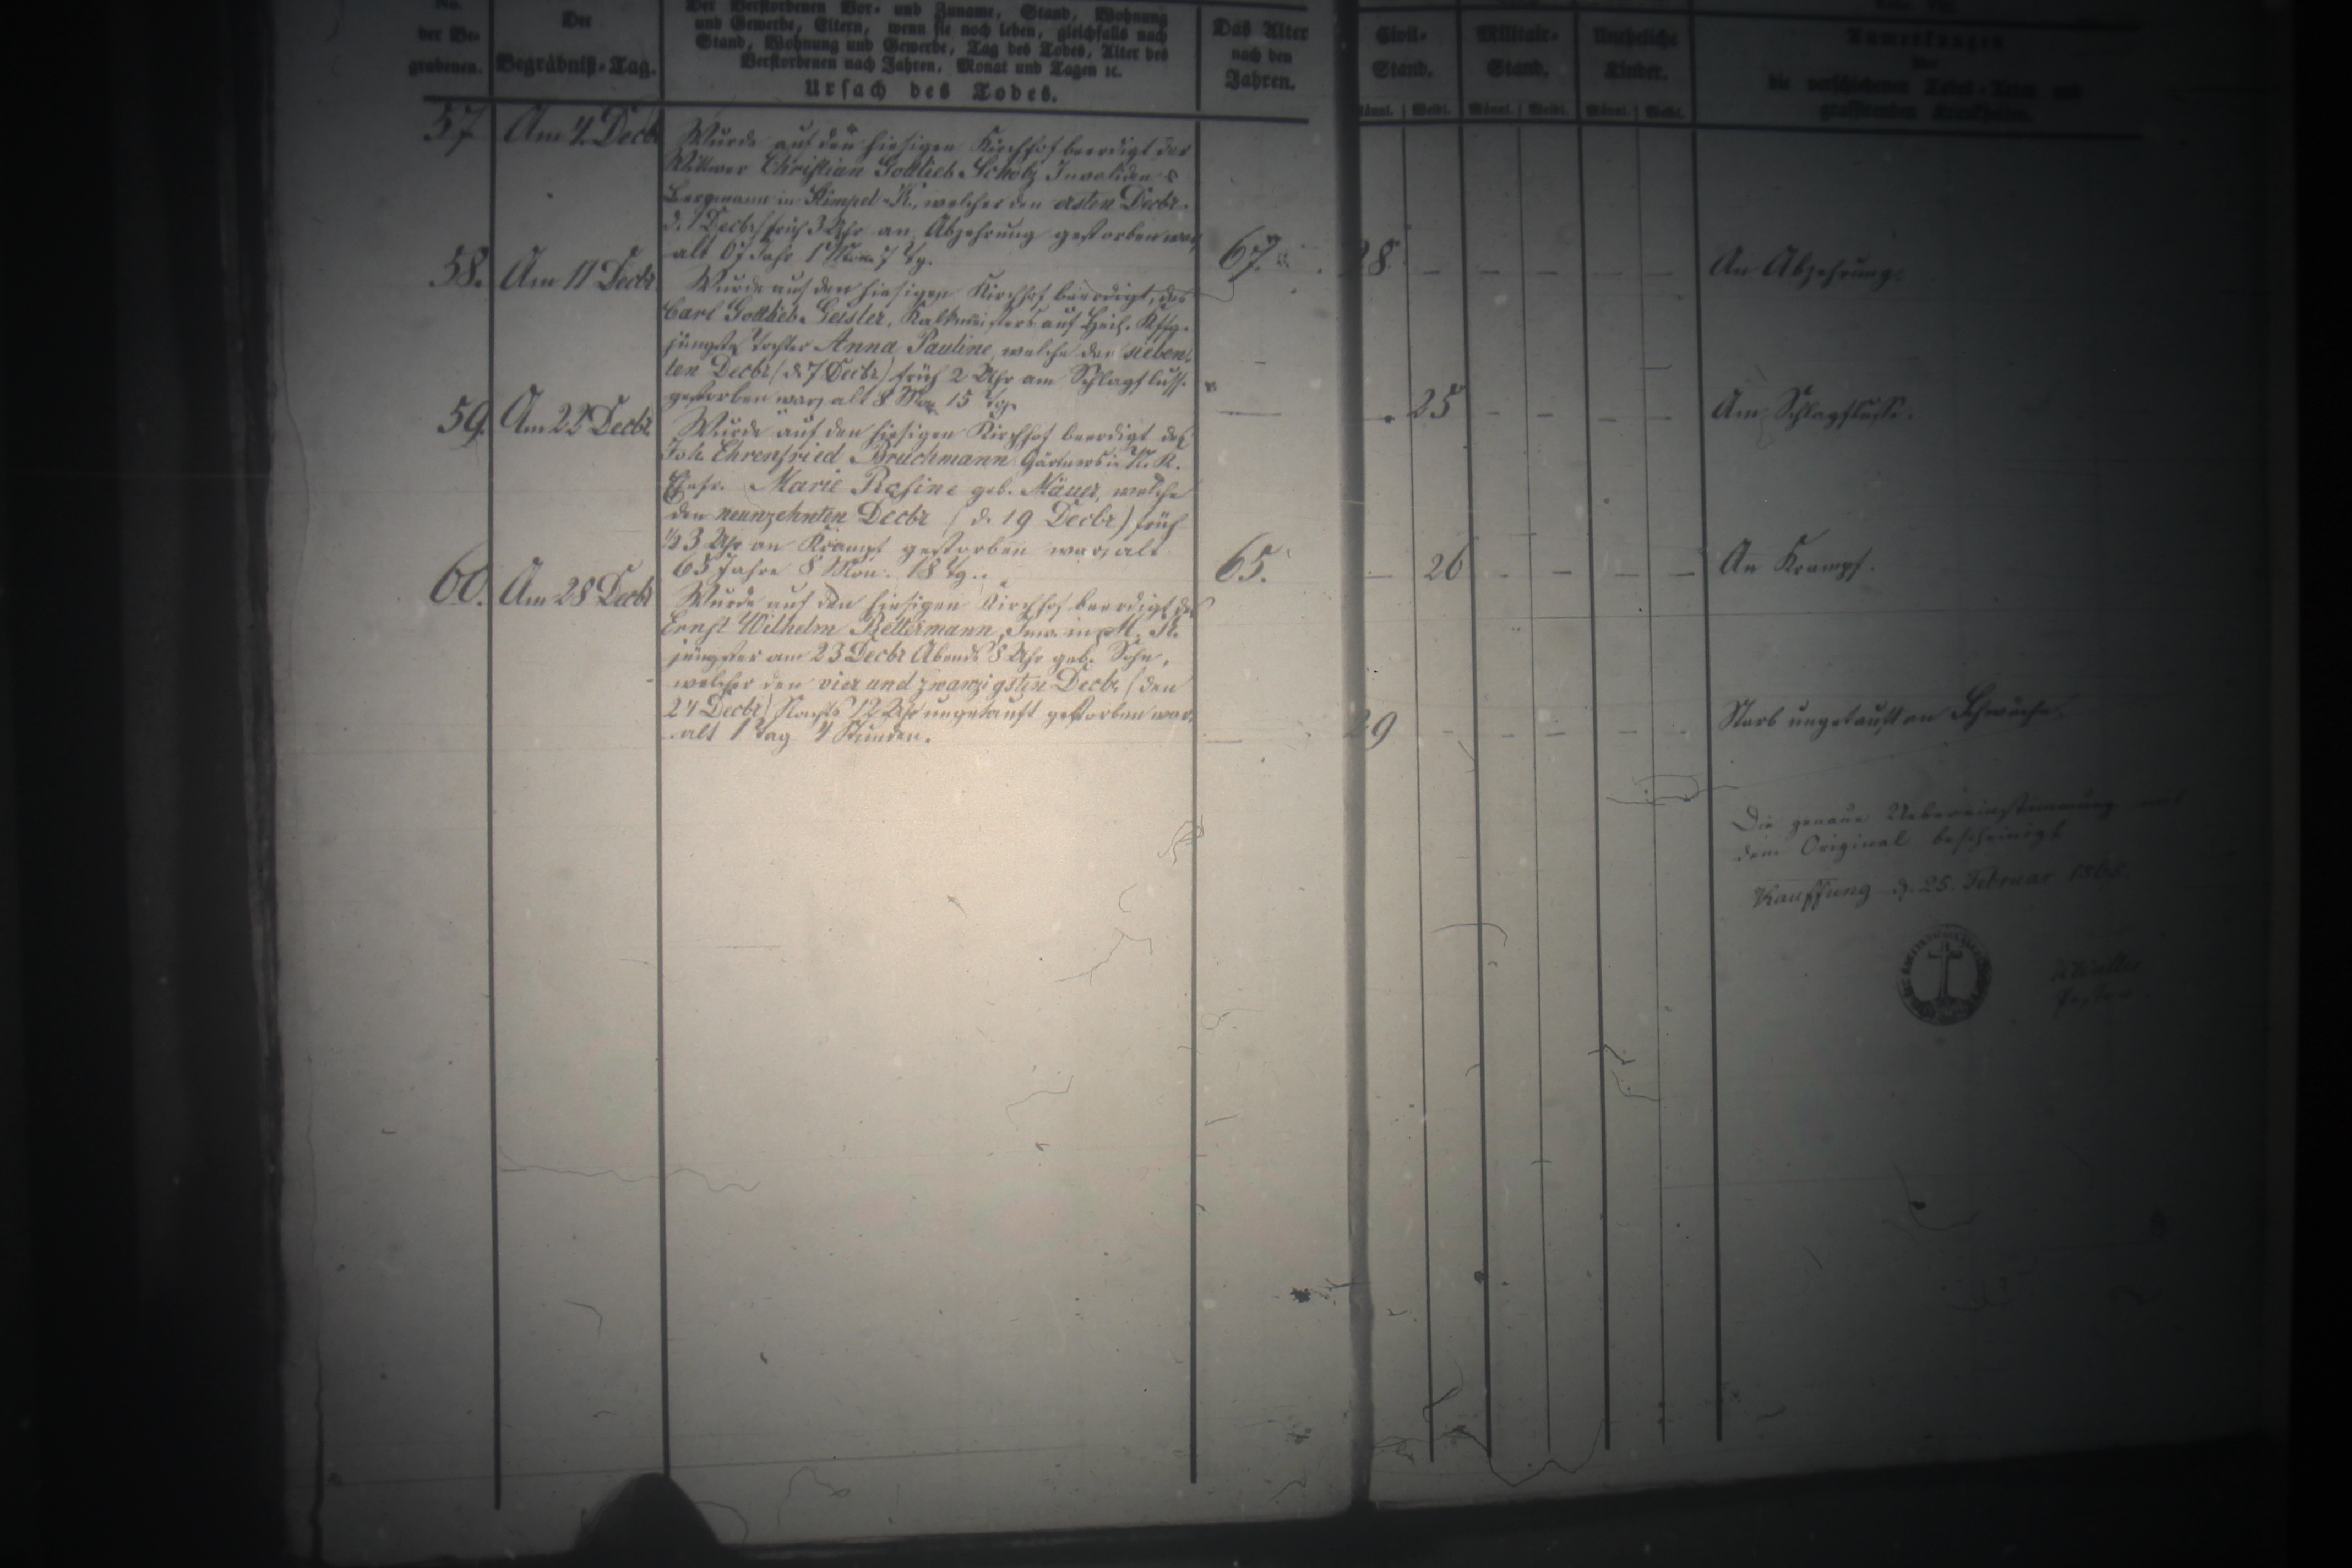 No.
der Be-
grabenen.
Der
Begräbniß-Tag.
Der Verstorbenen Vor- und Zuname, Stand, Wohnung
und Gewerbe, Eltern, wenn sie noch leben, gleichfalls nach
Stand, Wohnung und Gewerbe, Tag des Todes, Alter des
Verstorbenen nach Jahren, Monat und Tagen ꝛc.
Ursach des Todes.
Das Alter
nach den
Jahren.
Civil-
Stand.
Militair-
Stand.
Uneheliche
Kinder.
Anmerkungen
die verschiedenen Todes-Arten und
grassirenden Krankheiten.
Männl. Weibl. Männl. Weibl. Männl. Weibl.
57 Am 4. Decbr
Wurde auf den hiesigen Kirchhof beerdigt der
Wittwer Christian Gottlieb Scholz Invaliden
Bergmann in Stimpel-K., welcher den ersten Decbr.
d. 1 Decbr) früh 3 Uhr an Abzehrung gestorben war,
alt 67 Jahr 1 Mon. 7 Tg.
67. 28. — — — — — An Abzehrung.
58. Am 11 Decbr
Wurde auf den hiesigen Kirchhof beerdigt, des
Carl Gottlieb Geisler, Kalkmeisters auf
jüngste Tochter Anna Pauline, welche den sieben-
ten Decbr (d. 7 Decbr) früh 2 Uhr am Schlagflusse
gestorben war, alt 8 Mon. 15 Tg.
— 25 — — — — Am Schlagflusse.
59. Am 22 Decbr.
Wurde auf den hiesigen Kirchhof beerdigt des
Joh. Ehrenfried Bruchmann Gärtners in N. K.
Ehefr. Marie Rosine geb. Mäuer, welche
den neunzehnten Decbr (d. 19 Decbr) früh
½3 Uhr an Krampf gestorben war, alt
65 Jahre 8 Mon. 18 Tg.
65. — 26 — — — — An Krampf.
60. Am 28 Decbr
Wurde auf den hiesigen Kirchhof beerdigt des
Ernst Wilhelm Bettermann, Inw. in M. K.
jüngster am 23 Decbr Abends 8 Uhr geb. Sohn,
welcher den vier und zwanzigsten Decbr (den
24 Decbr) Nachts 12 Uhr ungetauft gestorben war,
alt 1 Tag 4 Stunden.
— 29 — — — — — Starb ungetauft an Schwäche.
Die genaue Uebereinstimmung mit
dem Original bescheinigt
Kauffung d. 25. Februar